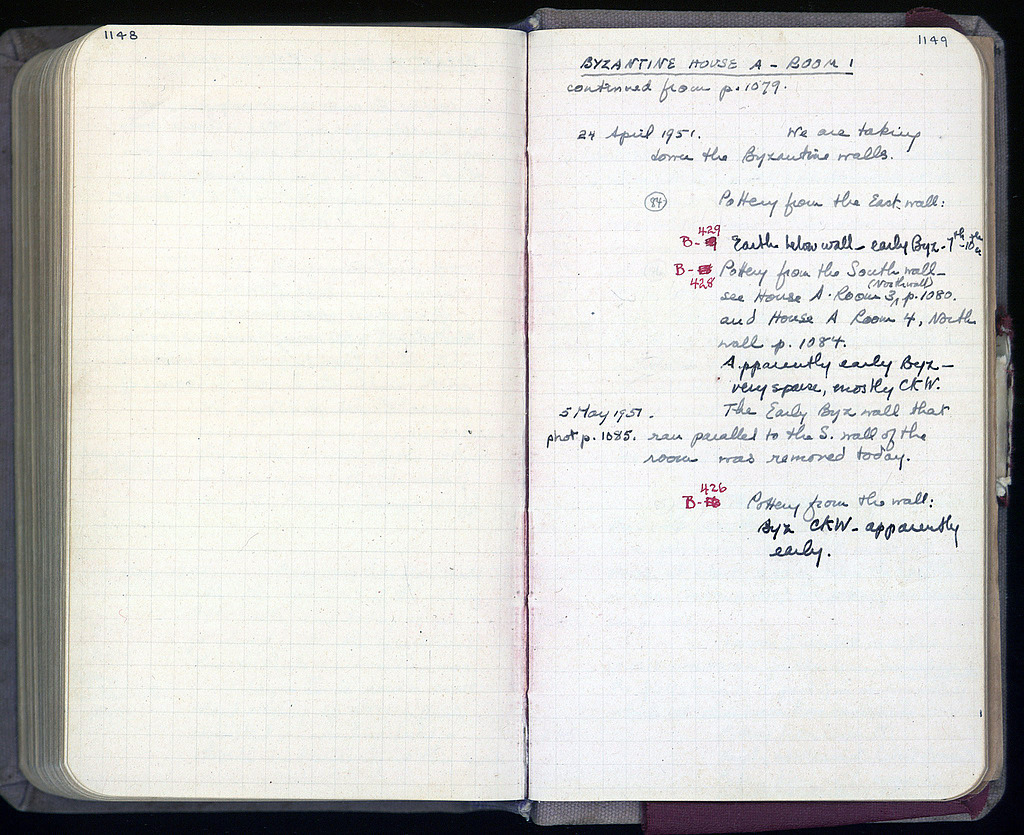 1148
1149
BYZANTINE HOUSE A - ROOM 1
continued from p. 1079.
24 April 1951. We are taking
down the Byzantine walls.
84 Pottery from the East wall:
429
B- Earth below wall - early Byz - 7th-10th
B- Pottery from the South wall -
428 (North wall)
see House A. Room 3, p. 1080.
and House A Room 4, North
wall p. 1084.
Apparently early Byz -
very sparse, mostly CKW.
5 May 1951. The Early Byz wall that
phot p. 1085. ran parallel to the S. wall of the
room was removed today.
426
B- Pottery from the wall:
Byz CKW - apparently
early.